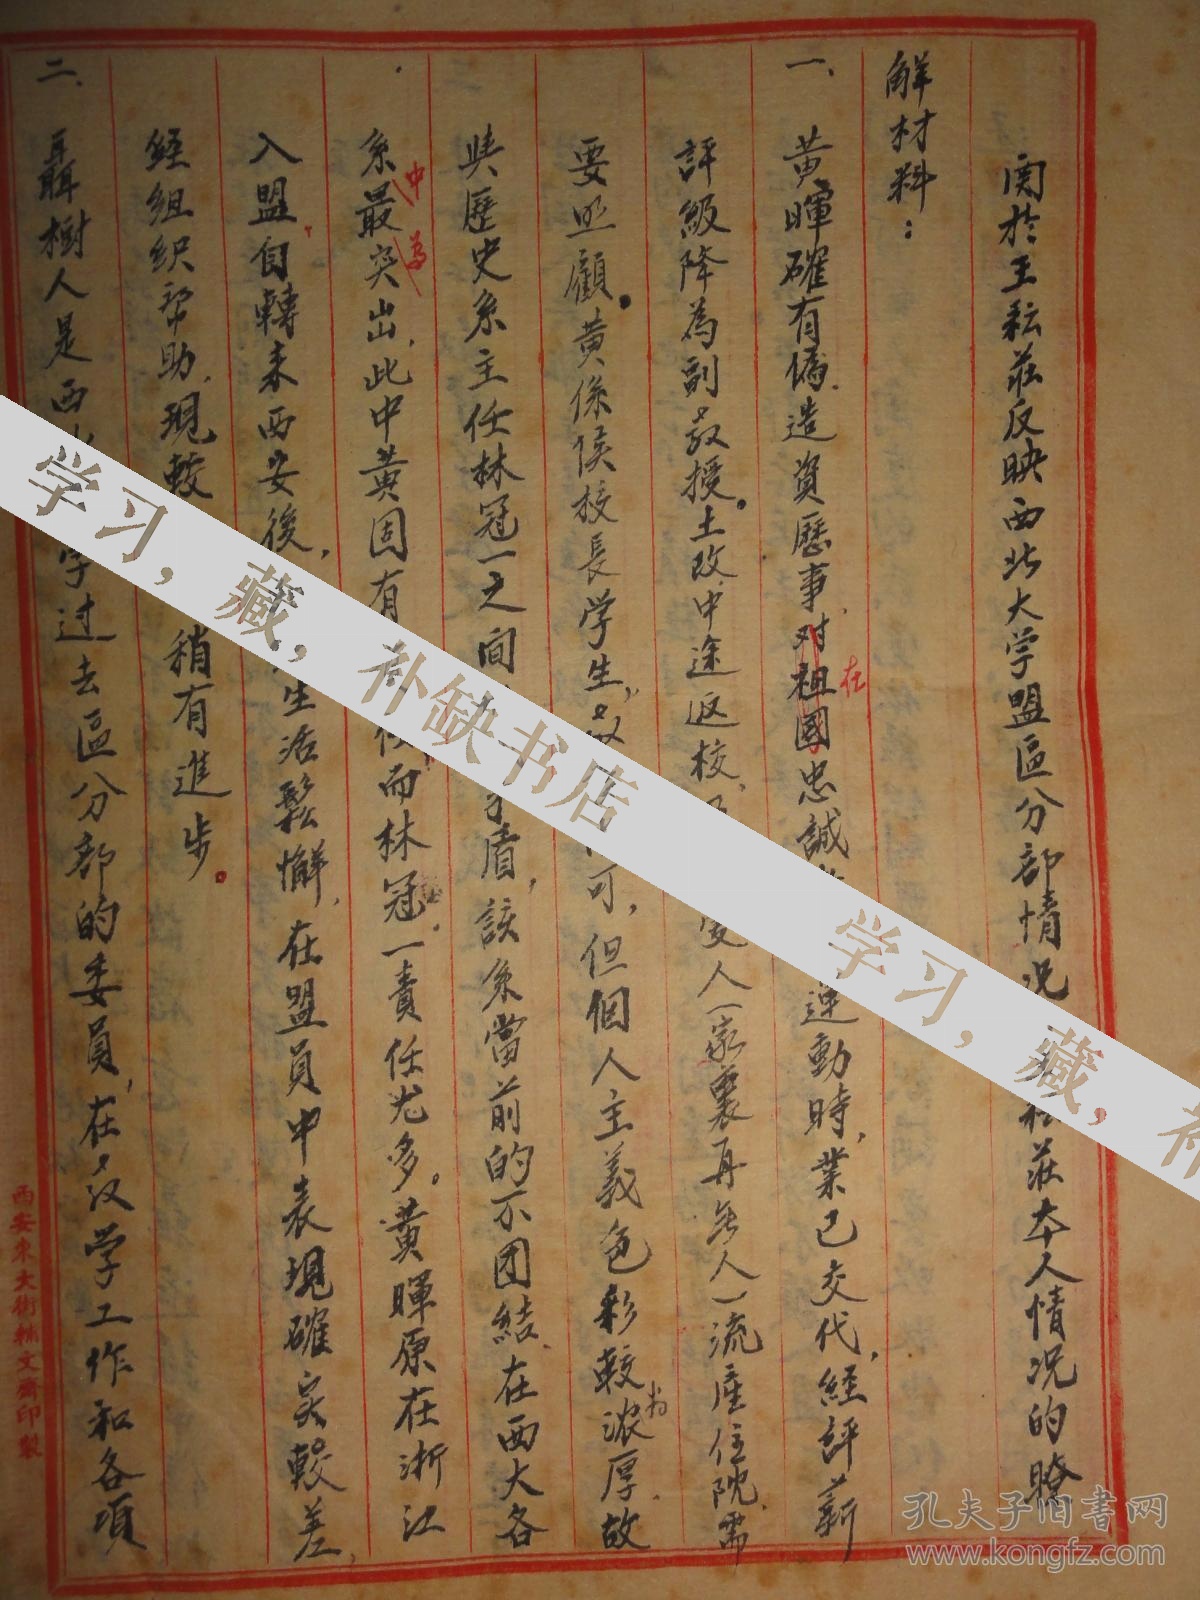 関於王耘莊反映西北大学盟區分部情况莊本人情况的瞭
解材料：
一、黄暉確有偽造資歷事，对祖國在忠誠運動時，業已交代，經評薪
評級降為副教授。土改中途返校，人（家裏再無人）流産住院，需
要照顧。黄係侯校長学生，可，但個人主義色彩較为濃厚，故
與歷史系主任林冠一之间盾，該系當前的不团結，在西大各
系中最為突出，此中黄固有而林冠一責任尤多。黄暉原在浙江
入盟，自轉来西安後，生活鬆懈，在盟員中表現確实較差，
經組织帮助，現較稍有進步。
二、聶樹人是西学过去區分部的委員，在教学工作和各項
西安东大街翰文齋印製
学习，藏，补缺书店
学习，藏，补
孔夫子旧书网
www.kongfz.com